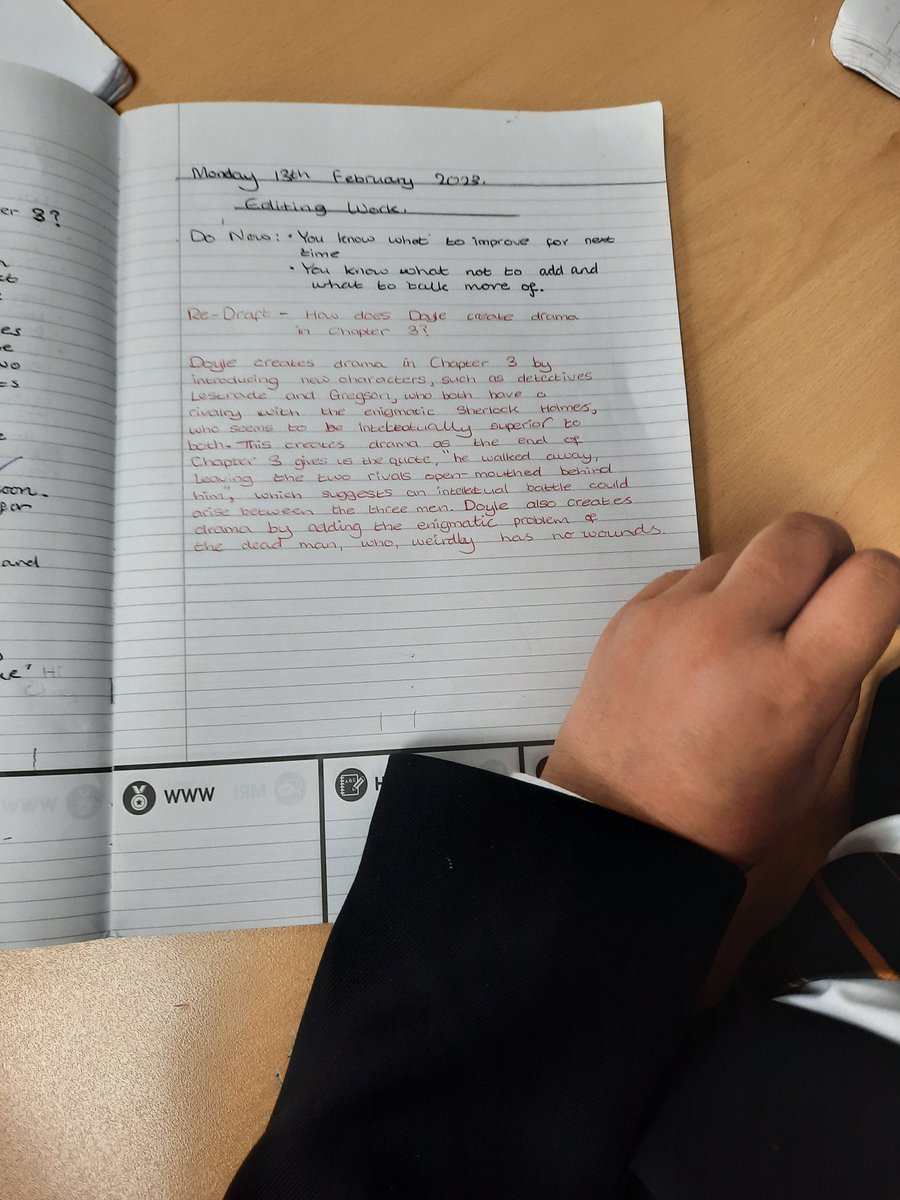 er 3?
es
wo
oon.
and
Monday 13th February 2023.
Editing Work.
Do Now: • You know what to improve for next
time
• You know what not to add and
what to talk more of.
Re-Draft - How does Doyle create drama
in Chapter 3?
Doyle creates drama in Chapter 3 by
introducing new characters, such as detectives
Lestrade and Gregson, who both have a
rivalry with the enigmatic Sherlock Holmes,
who seems to be intelectually superior to
both. This creates drama as the end of
Chapter 3 gives us the quote, "he walked away,
leaving the two rivals open-mouthed behind
him", which suggests an intelletual battle could
arise between the three men. Doyle also creates
drama by adding the enigmatic problem of
the dead man, who, weirdly has no wounds.
WWW
H